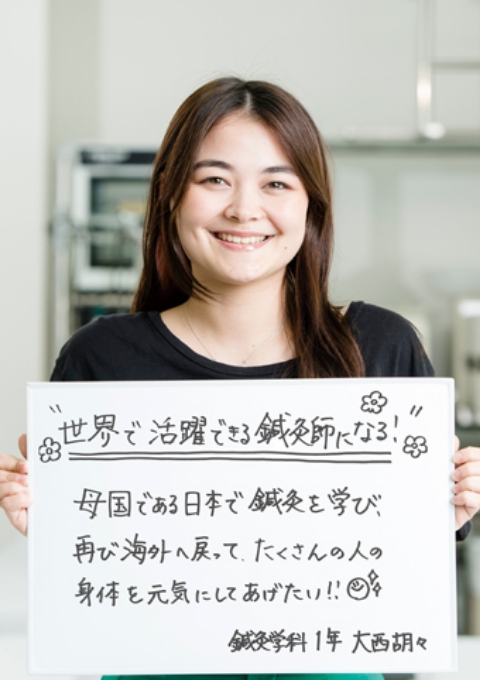 世界で活躍できる鍼灸師になる!
母国である日本で鍼灸を学び、
再び海外へ戻って、たくさんの人の
身体を元気にしてあげたい!!
鍼灸学科1年 大西胡々